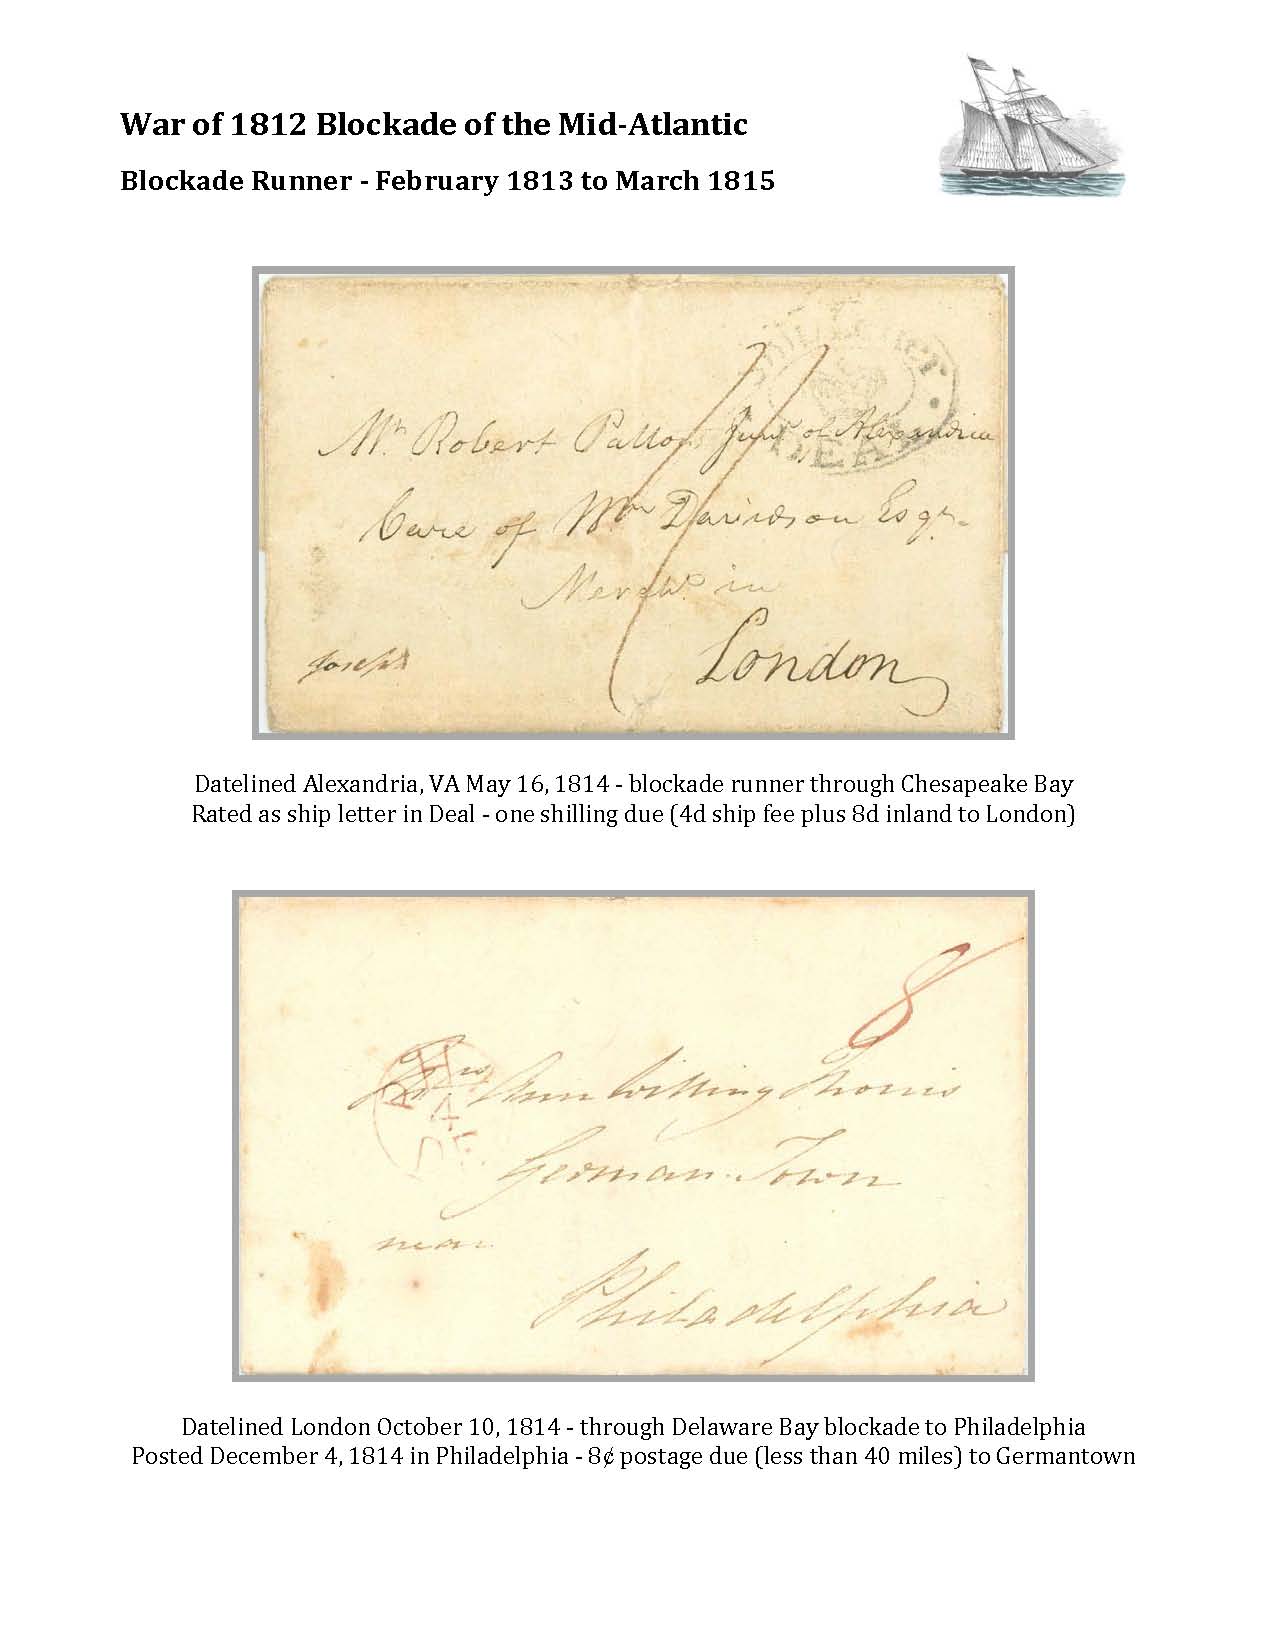 War of 1812 Blockade of the Mid-Atlantic
Blockade Runner - February 1813 to March 1815
SHIP LETTER
DEAL
Mr. Robert Patton Junr. of Alexandria
Care of Wm Davidson Esqr.
Mercht. in
London
Joseph
Datelined Alexandria, VA May 16, 1814 - blockade runner through Chesapeake Bay
Rated as ship letter in Deal - one shilling due (4d ship fee plus 8d inland to London)
8
4
DE.
Mrs. Ann Willing Morris
German-Town
near
Philadelphia
Datelined London October 10, 1814 - through Delaware Bay blockade to Philadelphia
Posted December 4, 1814 in Philadelphia - 8¢ postage due (less than 40 miles) to Germantown